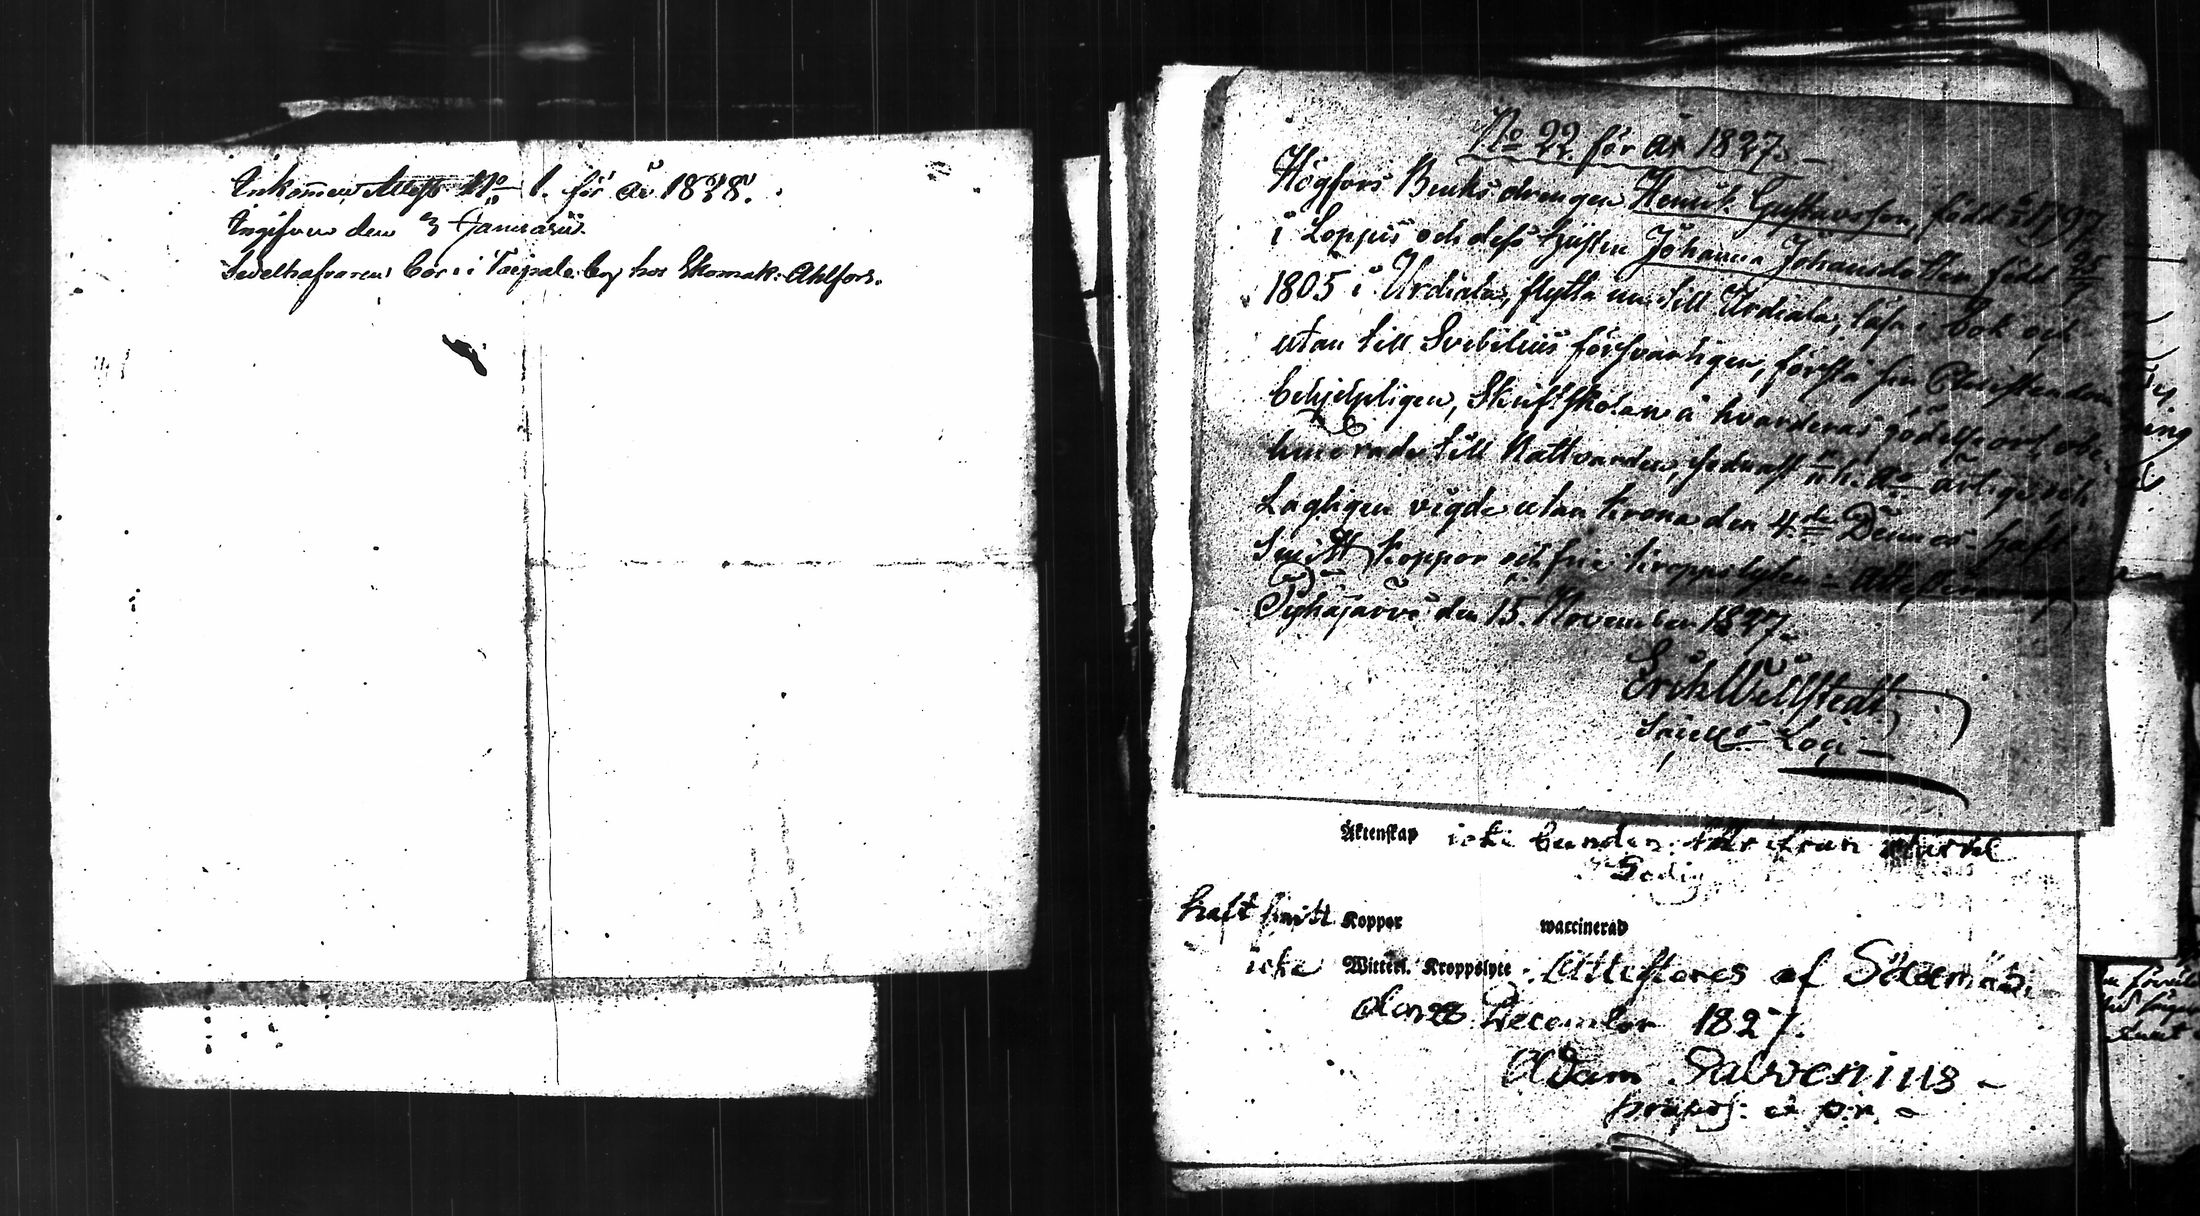 Inkommen Attest No 1. för år 1828.
Ingifven den 3 Januarii.
Sedelhafvaren bor i Taipale by hos Skomak: Ahlfors.
No 22 för år 1827.
Högfors Bruks drengen Henrik Gustavsson, född 1797
i Loppis och dess hustru Johanna Johansdotter född 25/1
1805 i Urdiala, flytta nu till Urdiala, läsa i bok och
utan till Svebilius försvarligen, förstå sin Christendom
behjelpligen, Skriftskolan å hvarderas födelse ort, obe-
hindrade till Nattvarden, sednast årlige och
Lagligen vigde utan krona den 4de Dennes haft
Smitt koppor och fria kroppslyten Attesterar
Pyhäjärvi den 15. November 1827.
Erik Wellstedt
Sacell: Loci
Äktenskap icke bunden härifrån
Ledig
haft smitt Koppor waccinerad
icke Witterl. Kroppslyte. Attesteras af Sääxmäki
den 28 December 1827.
Adam Salvenius
præpos: et p:r.